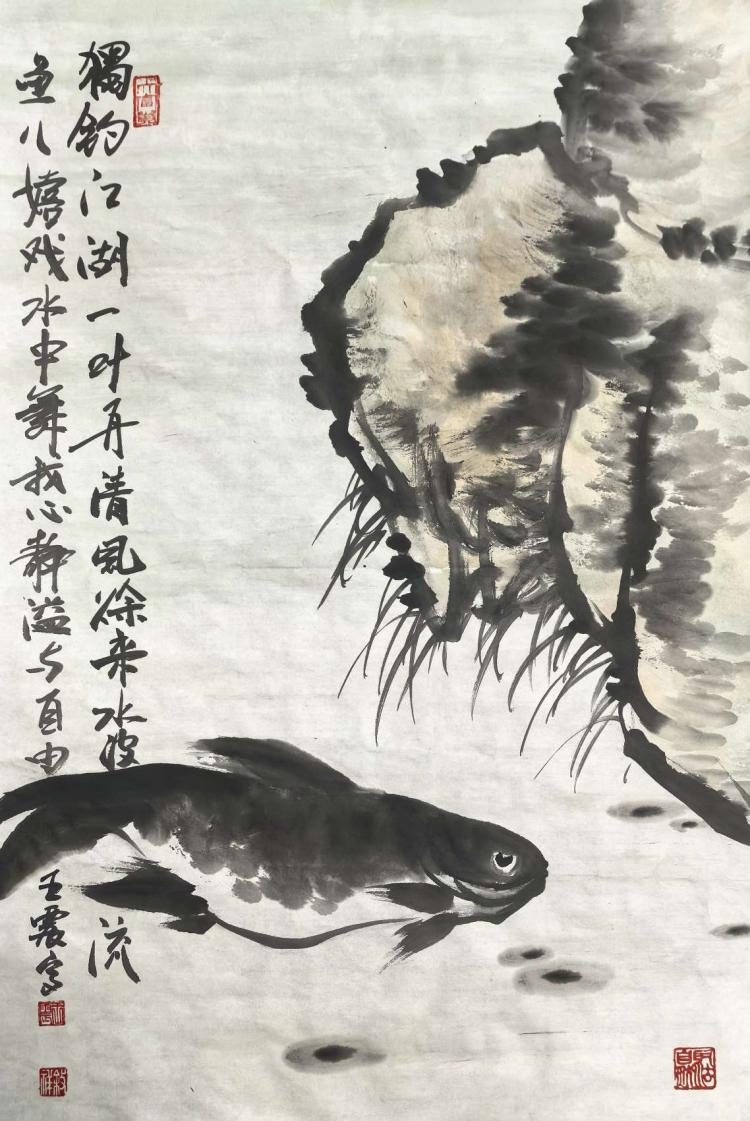 獨钓江湖一叶舟清风徐来水波流
鱼儿嬉戏水中舞我心静溢与自由
王震写